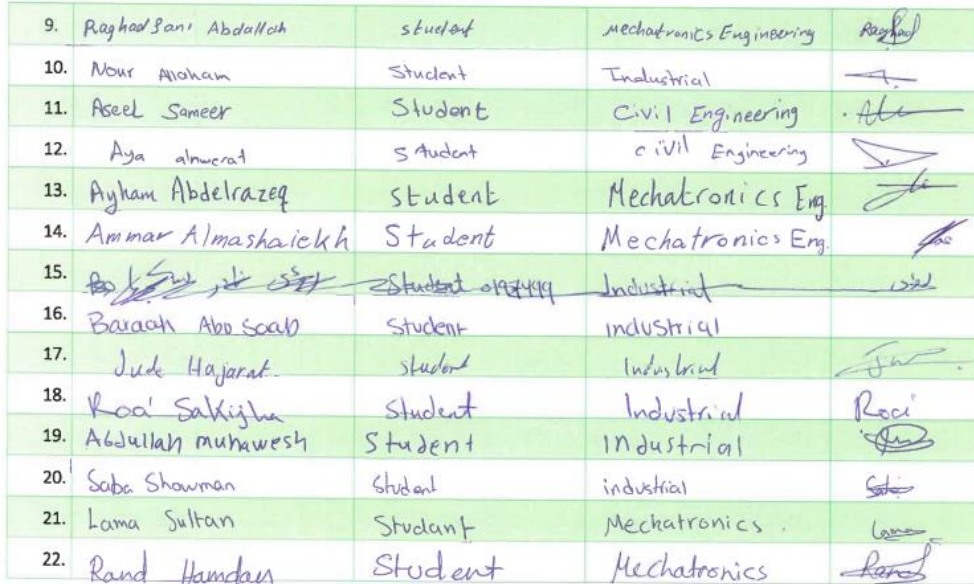 9. Raghad Sani Abdallah student Mechatronics Engineering Raghad
10. Nour Student Industrial
11. Aseel Sameer Student Civil Engineering
12. Aya alnwerat Student civil Engineering
13. Ayham Abdelrazeq student Mechatronics Eng.
14. Ammar Almashaiekh Student Mechatronics Eng.
15. Student Industrial
16. Baraah Abo Soab Student industrial
17. Jude Hajarat. student Industrial
18. Roa' Sakijha Student Industrial
19. Abdullah muhawesh Student Industrial
20. Saba Showman Student industrial
21. Lama Sultan Studant Mechatronics . Lama
22. Rand Hamdan Student Mechatronics Rand